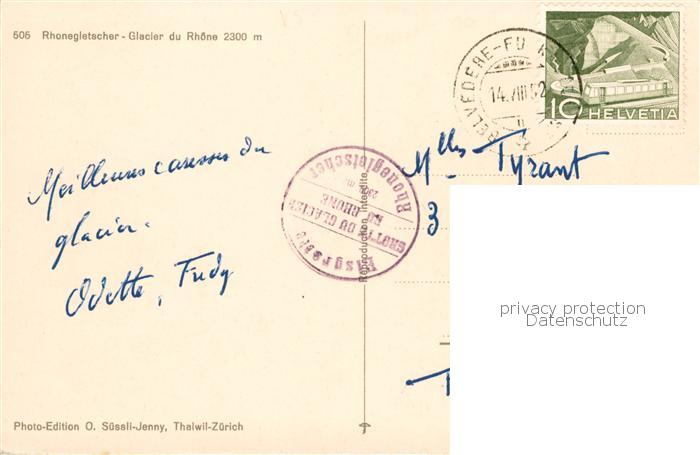 506 Rhonegletscher - Glacier du Rhône 2300 m
BELVEDERE-FURKA
14.VIII.52
10 HELVETIA
Meilleures caresses du
glacier.
Odette, Fredy
Rhonegletscher
2300 m.
GROTTE DU GLACIER
DU RHONE
Eisgrotte
Reproduction interdite
Mlles Tyrant
3
privacy protection
Datenschutz
Photo-Edition O. Süssli-Jenny, Thalwil-Zürich